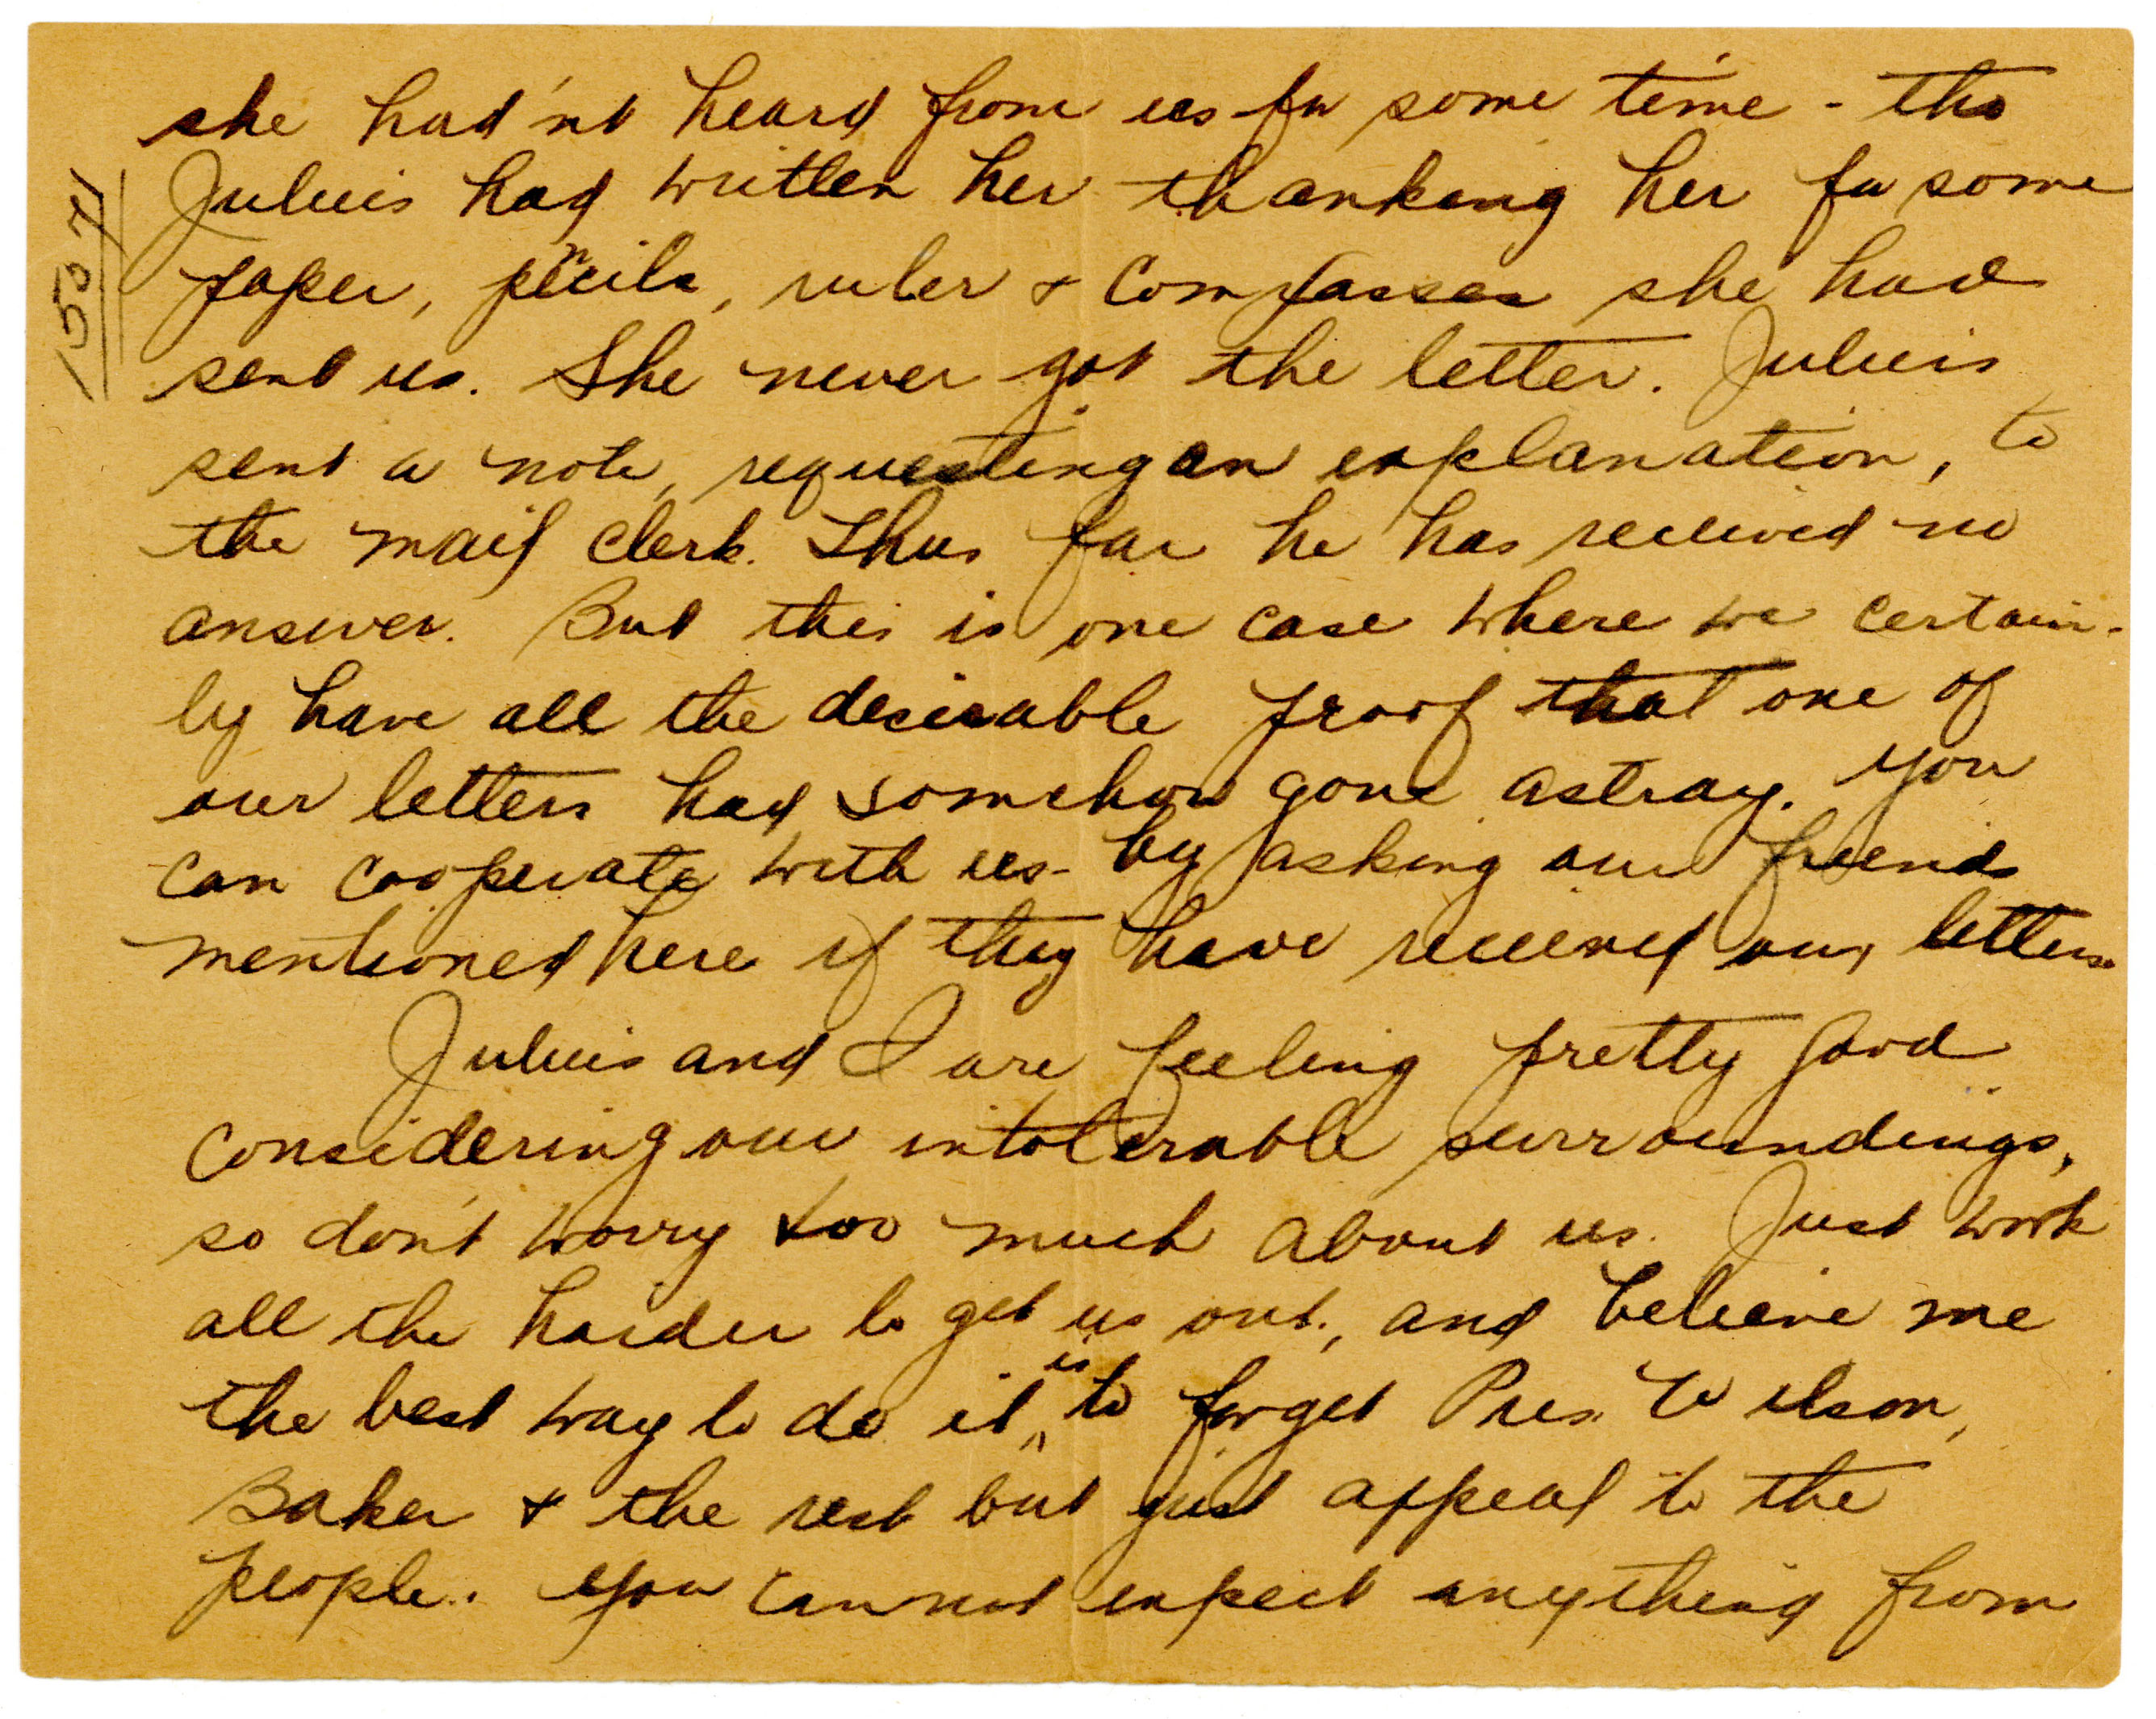 15071
she had'nt heard from us for some time - tho
Julius had written her thanking her for some
paper, pencils, ruler & compasses she had
sent us. She never got the letter. Julius
sent a note, requesting an explanation, to
the mail clerk. Thus far he has received no
answer. But this is one case where we certain-
ly have all the desirable proof that one of
our letters had somehow gone astray. You
can cooperate with us by asking our friends
mentioned here if they have received our letters.
Julius and I are feeling pretty good
considering our intolerable surroundings,
so don't worry too much about us. Just work
all the harder to get us out, and believe me
the best way to do it is to forget Pres. Wilson,
Baker & the rest but just appeal to the
people. You cannot expect anything from